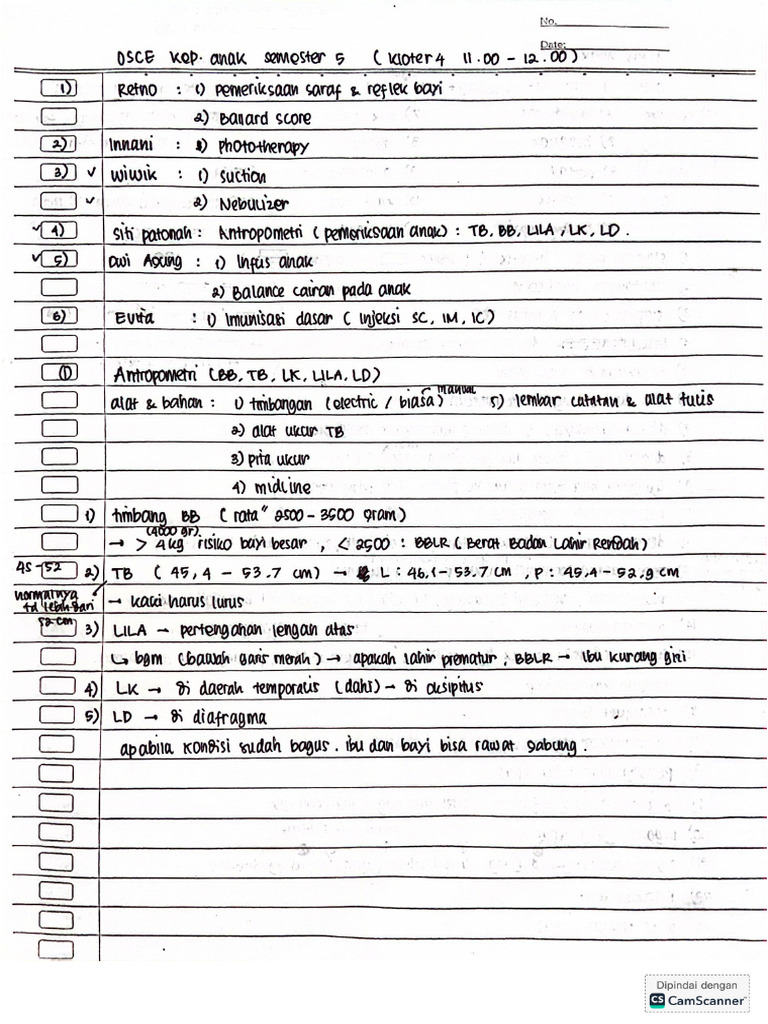 No.
Date:
OSCE Kep. anak semester 5 ( Kloter 4 11.00 - 12.00 )
1) Retno : 1) pemeriksaan saraf & reflek bayi
2) Banard score
2) Innani : 1) phototherapy
3) ✓ wiwik : 1) suction
✓ 2) Nebulizer
✓ 4) siti patonah : Antropometri ( pemeriksaan anak ) : TB, BB, LILA, LK, LD .
✓ 5) Dwi Agung : 1) Infus anak
2) Balance cairan pada anak
6) Evita : 1) Imunisasi dasar ( Injeksi SC, IM, IC )
① Antropometri (BB, TB, LK, LILA, LD)
alat & bahan : 1) timbangan (electric / biasa) manual 5) lembar catatan & alat tulis
2) alat ukur TB
3) pita ukur
4) midline
1) timbang BB ( rata" 2500 - 3500 gram)
→ > 4kg (4000 gr) risiko bayi besar , < 2500 : BBLR ( Berat Badan Lahir Rendah )
45 - 52 2) TB ( 45,4 - 53.7 cm) → L : 46,1 - 53.7 cm , P : 45.4 - 52.9 cm
normalnya td lebih dari 52 cm → kaki harus lurus
3) LILA → pertengahan lengan atas
↳ bgm (bawah garis merah) → apakah lahir prematur , BBLR → ibu kurang gizi
4) LK → di daerah temporalis (dahi) → di oksipitus
5) LD → di diafragma
apabila kondisi sudah bagus . ibu dan bayi bisa rawat gabung .
Dipindai dengan
CS CamScanner